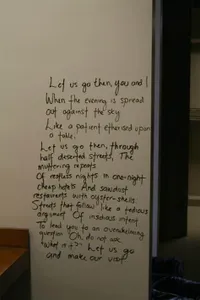 Let us go then, you and I
When the evening is spread
out against the sky
Like a patient etherised upon
a table;
Let us go then, through
half deserted streets, The
muttering repeats
Of restless nights in one-night
cheap hotels And sawdust
restaurants with oyster-shells
Streets that follow like a tedious
argument Of insidious intent
To lead you to an overwhelming
question Oh, do not ask
"What is it?" Let us go
and make our visit